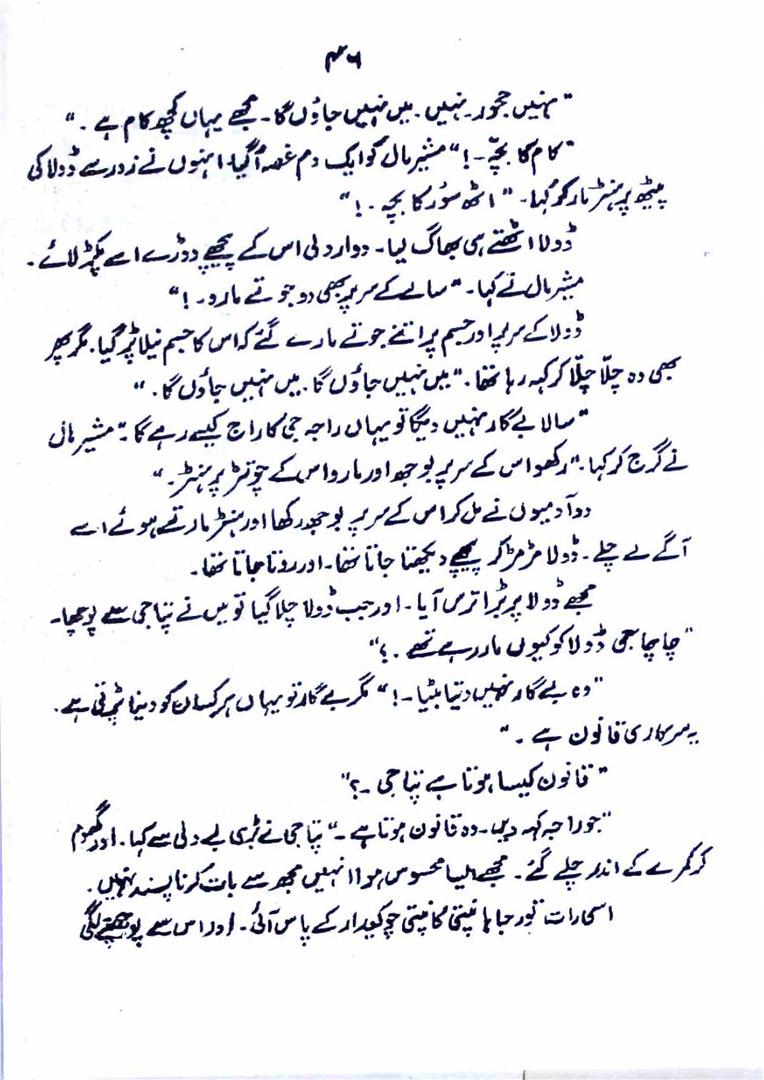 ۴۶
"نہیں حجور۔ نہیں۔ میں نہیں جاؤں گا۔ مجھے یہاں کچھ کام ہے۔"
"کام کا بچّہ۔!" مشیر مال کو ایک دم غصہ آگیا۔ انہوں نے زور سے ڈولا کی
پیٹھ پر ہنٹر مار کر کہا۔ "اٹھ سؤر کا بچہ۔!"
ڈولا اٹھتے ہی بھاگ لیا۔ دو اردلی اس کے پیچھے دوڑے اسے پکڑ لائے۔
مشیر مال نے کہا۔ "سالے کے سر پر بھی دو جوتے مارو۔!"
ڈولا کے سر پر اور جسم پر اتنے جوتے مارے گئے کہ اس کا جسم نیلا پڑ گیا۔ مگر پھر
بھی وہ چلّا چلّا کر کہہ رہا تھا۔ "میں نہیں جاؤں گا۔ میں نہیں جاؤں گا۔"
"سالا بے گار نہیں دیگا تو یہاں راجہ جی کا راج کیسے رہے گا۔" مشیر مال
نے گرج کر کہا۔ "رکھو اس کے سر پر بوجھ اور مارو اس کے چوتڑ پر ہنٹر۔"
دو آدمیوں نے مل کر اس کے سر پر بوجھ رکھا اور ہنٹر مارتے ہوئے اسے
آگے لے چلے۔ ڈولا مڑ مڑ کر پیچھے دیکھتا جاتا تھا۔ اور روتا جاتا تھا۔
مجھے ڈولا پر بڑا ترس آیا۔ اور جب ڈولا چلا گیا تو میں نے پتاجی سے پوچھا۔
"چاچا جی ڈولا کو کیوں مار رہے تھے۔؟"
"وہ بے گار نہیں دیتا بیٹا۔!" مگر بے گار تو یہاں ہر کسان کو دینا پڑتی ہے۔
یہ سرکاری قانون ہے۔"
"قانون کیسا ہوتا ہے پتاجی۔؟"
"جو راجہ کہہ دیں۔ وہ قانون ہوتا ہے۔" پتاجی نے بڑی بے دلی سے کہا۔ اور گھوم
کر کمرے کے اندر چلے گئے۔ مجھے ایسا محسوس ہوا انہیں مجھ سے بات کرنا پسند نہیں۔
اسی رات نور جہاں ہانپتی کانپتی چوکیدار کے پاس آئی۔ اور اس سے پوچھنے لگی